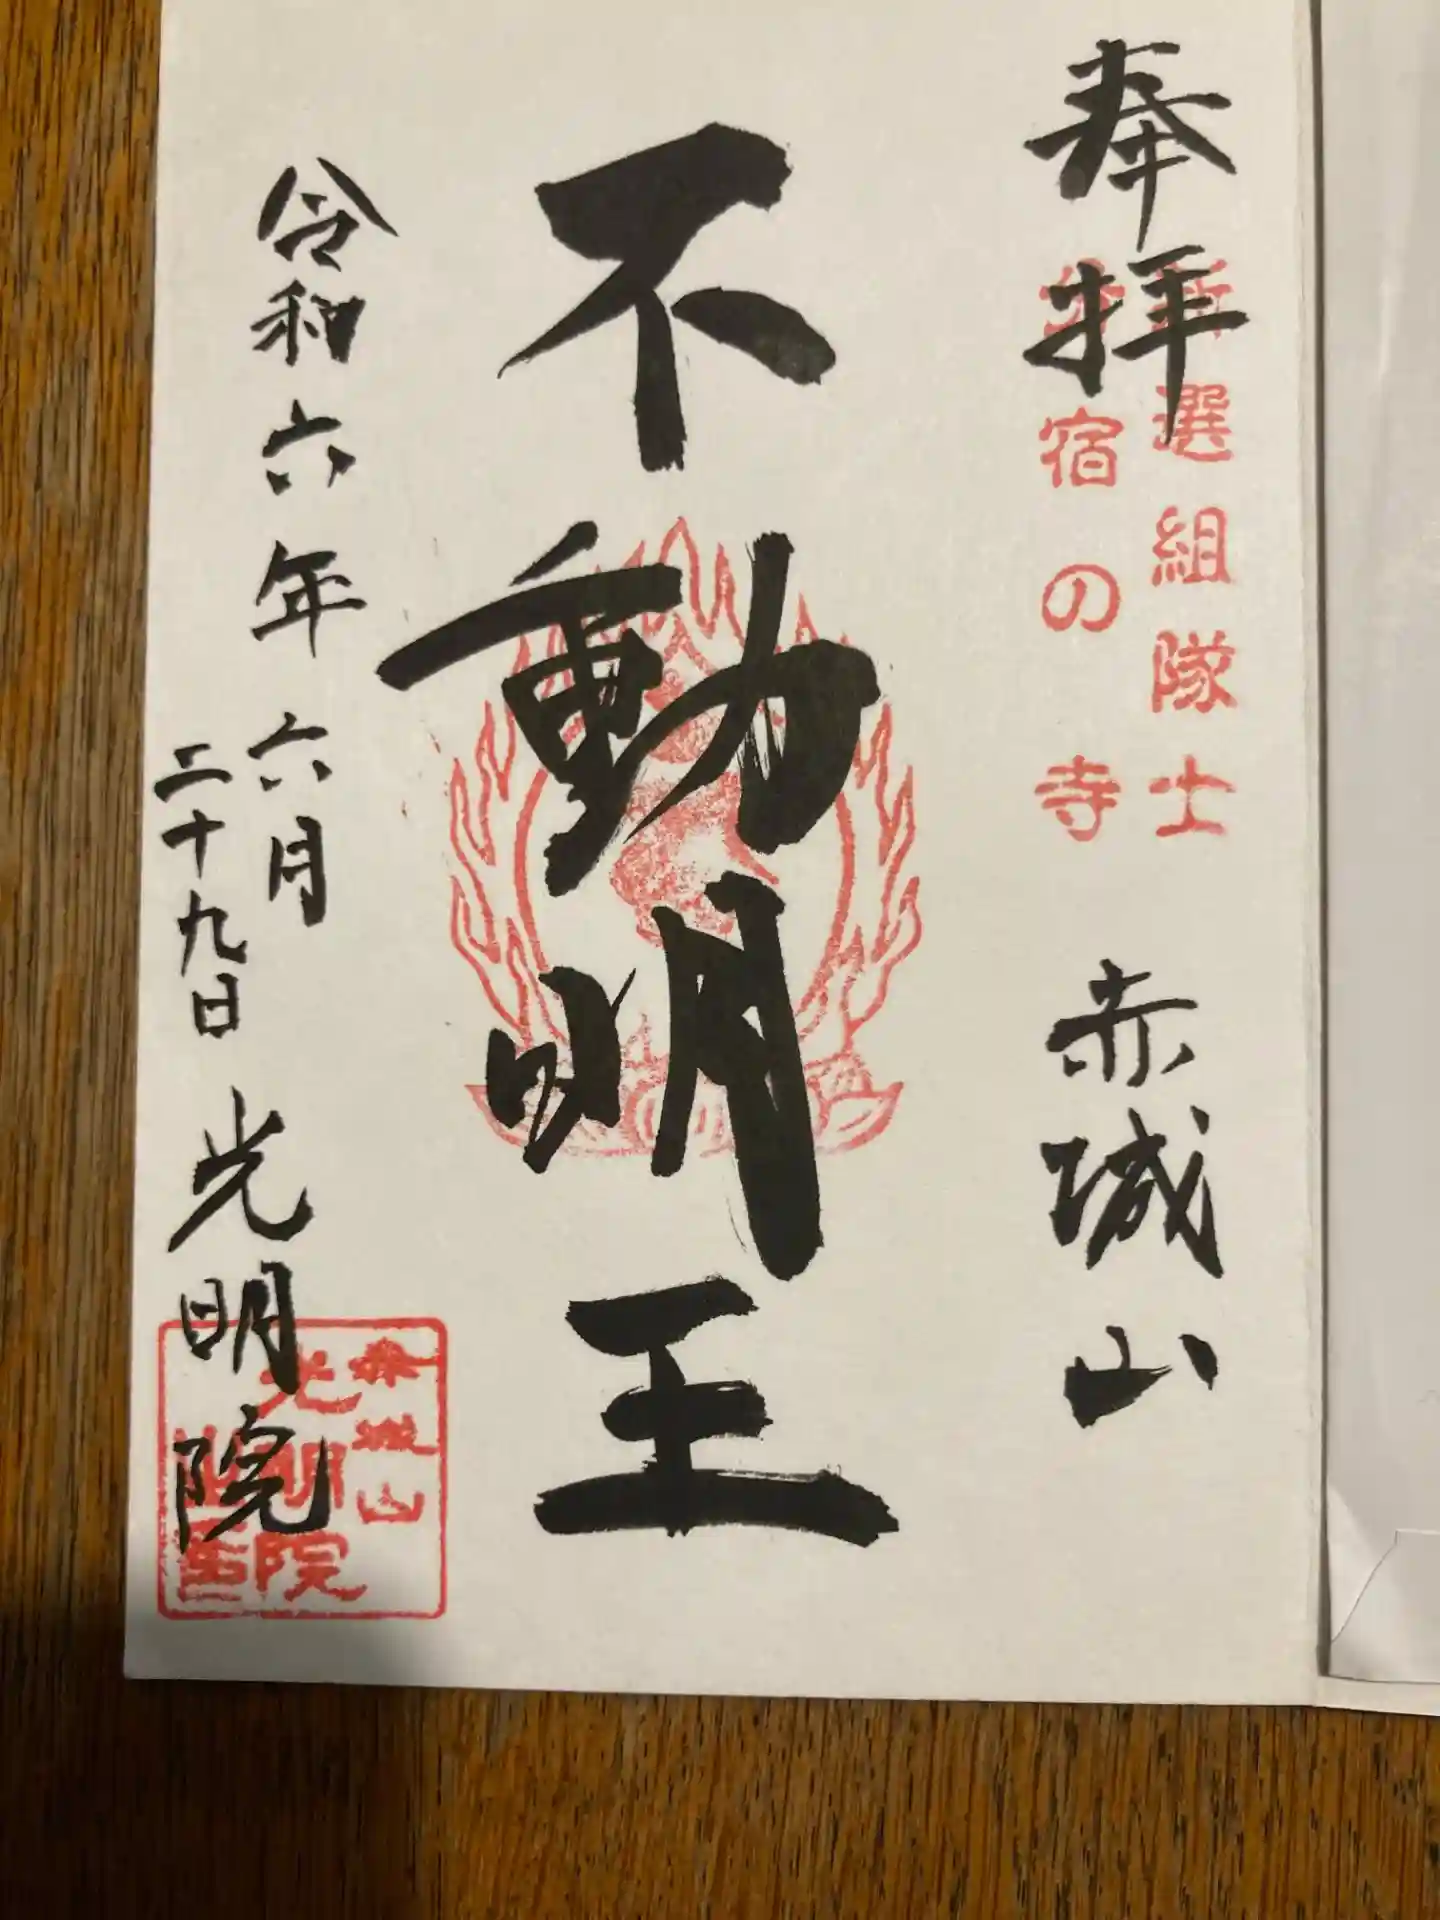 奉拝
選組隊士
宿の寺
赤城山
不動明王
令和六年六月
二十九日
光明院
赤城山
光明院